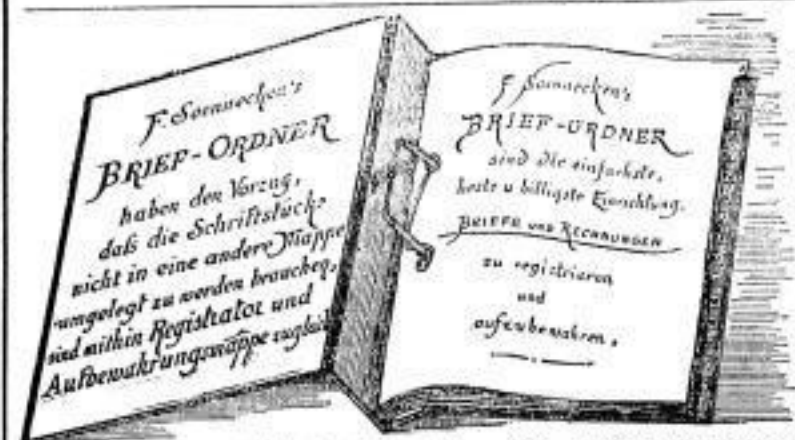 F. Soennecken's
BRIEF-ORDNER
haben den Vorzug,
daß die Schriftstücke
nicht in eine andere Mappe
umgelegt zu werden brauchen,
sind mithin Registrator und
Aufbewahrungsmappe zugleich
F. Soennecken's
BRIEF-ORDNER
sind die einfachste,
beste u billigste Einrichtung,
BRIEFE und RECHNUNGEN
zu registrieren
und
aufzubewahren.